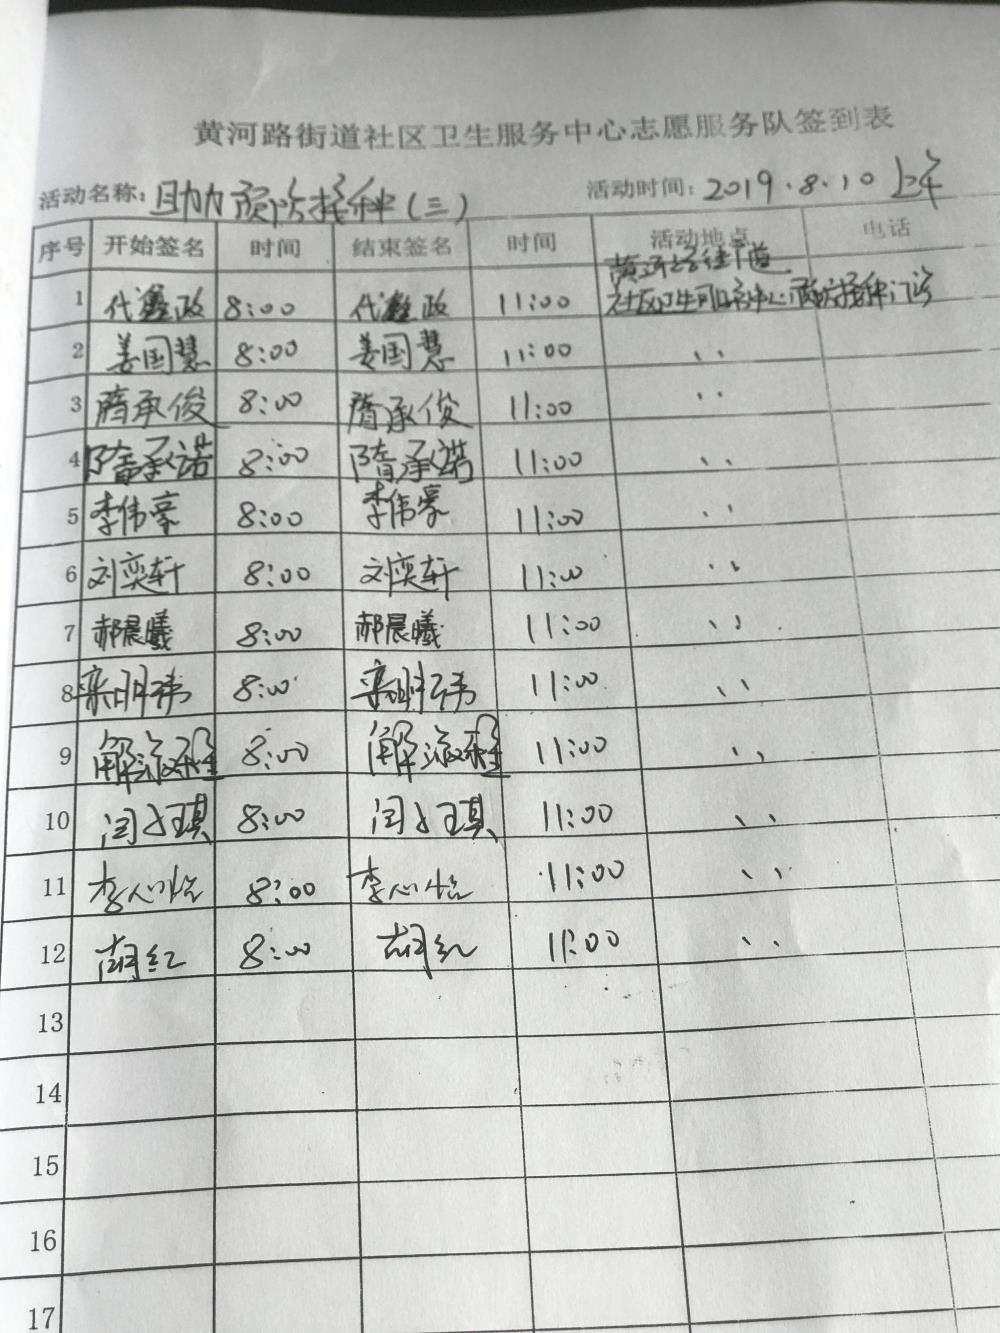 黄河路街道社区卫生服务中心志愿服务队签到表
活动名称：助力预防接种（三） 活动时间：2019.8.10 上午
序号 开始签名 时间 结束签名 时间 活动地点 电话
1 代鑫政 8:00 代鑫政 11:00 黄河路街道
社区卫生服务中心预防接种门诊
2 姜国慧 8:00 姜国慧 11:00 、、
3 隋承俊 8:00 隋承俊 11:00 、、
4 隋承诺 8:00 隋承诺 11:00 、、
5 李伟豪 8:00 李伟豪 11:00 、、
6 刘奕轩 8:00 刘奕轩 11:00 、、
7 郝晨曦 8:00 郝晨曦 11:00 、、
8 栾明祎 8:00 栾明祎 11:00 、、
9 8:00 11:00 、、
10 闫子琪 8:00 闫子琪 11:00 、、
11 李心怡 8:00 李心怡 11:00 、、
12 胡红 8:00 胡红 11:00 、、
13
14
15
16
17